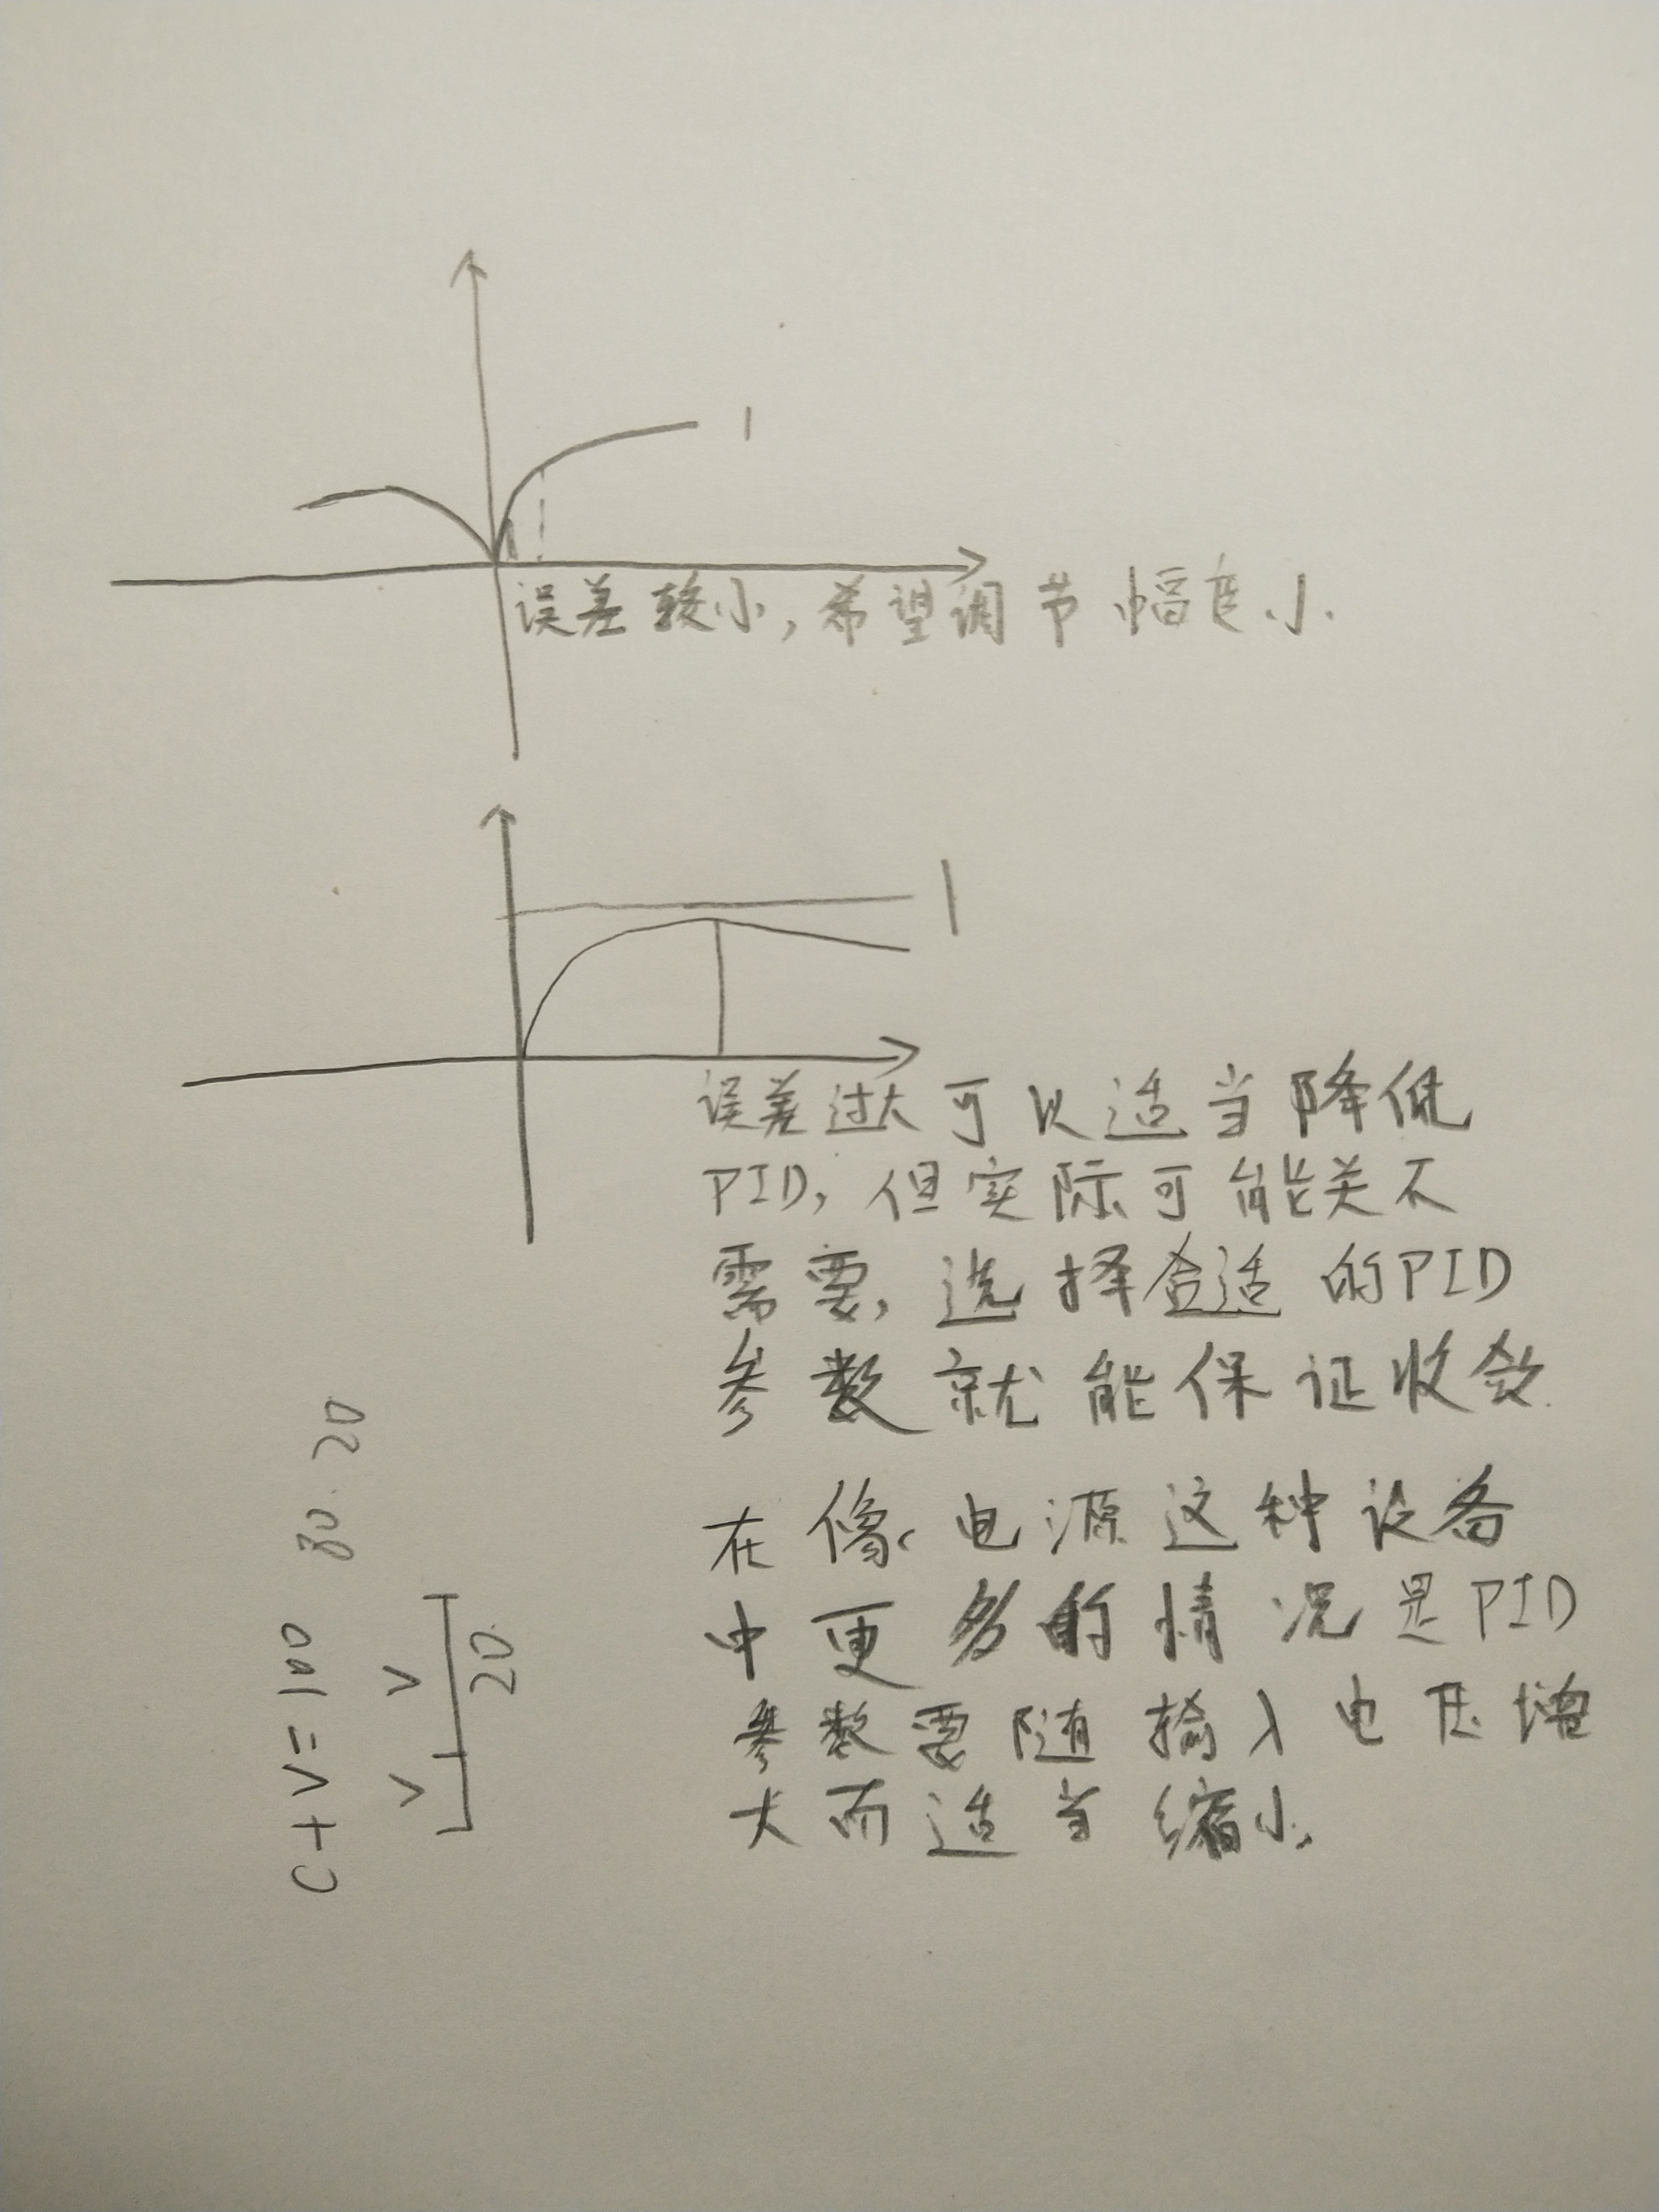 1
误差较小,希望调节幅度小.
1
误差过大可以适当降低
PID,但实际可能关不
需要,选择合适的PID
参数就能保证收敛.
在像电源这种设备
中更多的情况是PID
参数要随输入电压增
大而适当缩小.
C+V=100 80.20
V V
20